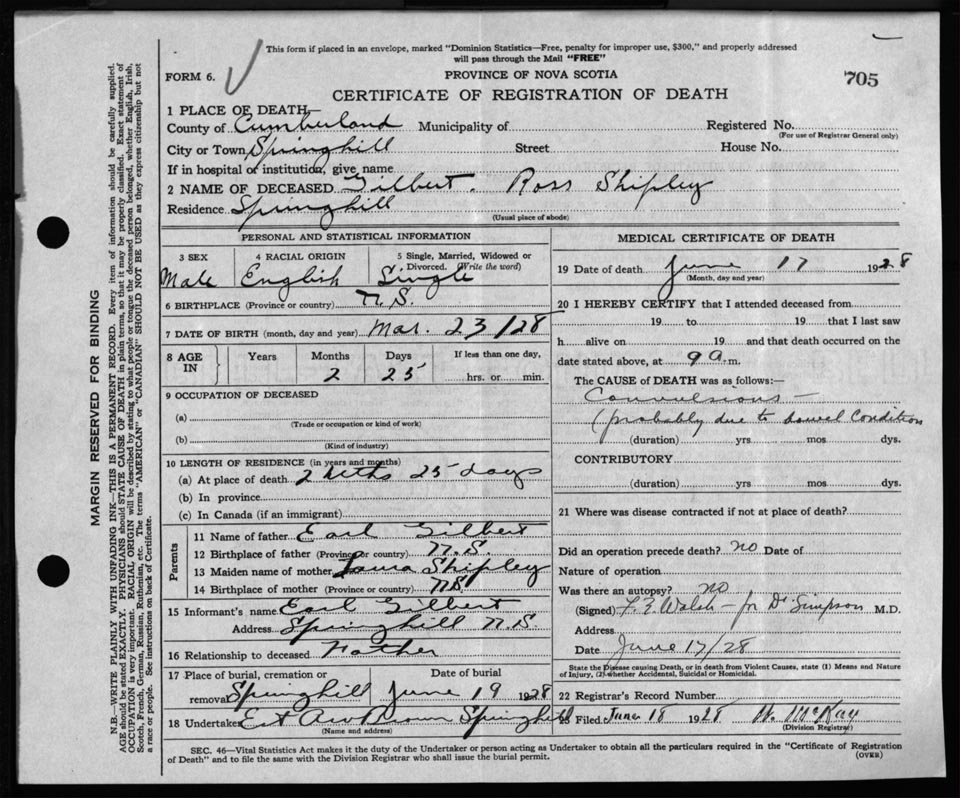 This form if placed in an envelope, marked "Dominion Statistics—Free, penalty for improper use, $300," and properly addressed
will pass through the Mail "FREE"
FORM 6.
PROVINCE OF NOVA SCOTIA
705
CERTIFICATE OF REGISTRATION OF DEATH
1 PLACE OF DEATH—
County of Cumberland Municipality of Registered No.
(For use of Registrar General only)
City or Town Springhill Street House No.
If in hospital or institution, give name
2 NAME OF DECEASED Gilbert. Ross Shipley
Residence Springhill
(Usual place of abode)
PERSONAL AND STATISTICAL INFORMATION
3 SEX 4 RACIAL ORIGIN 5 Single, Married, Widowed or
Divorced. (Write the word)
Male English Single
6 BIRTHPLACE (Province or country) N.S.
7 DATE OF BIRTH (month, day and year) Mar. 23/28
8 AGE IN Years Months Days If less than one day,
2 25 hrs. or min.
9 OCCUPATION OF DECEASED
(a)
(Trade or occupation or kind of work)
(b)
(Kind of industry)
10 LENGTH OF RESIDENCE (in years and months)
(a) At place of death 2 mths 25 days
(b) In province
(c) In Canada (if an immigrant)
Parents
11 Name of father Earl Gilbert
12 Birthplace of father (Province or country) N.S.
13 Maiden name of mother Laura Shipley
14 Birthplace of mother (Province or country) N.S.
15 Informant's name Earl Gilbert
Address Springhill N.S.
16 Relationship to deceased Father
17 Place of burial, cremation or Date of burial
removal Springhill June 19 1928
18 Undertaker Brown Springhill
(Name and address)
MEDICAL CERTIFICATE OF DEATH
19 Date of death June 17 1928
(Month, day and year)
20 I HEREBY CERTIFY that I attended deceased from
19 to 19 that I last saw
h alive on 19 and that death occurred on the
date stated above, at 9 a.m.
The CAUSE of DEATH was as follows:—
Convulsions —
(probably due to bowel condition
(duration) yrs mos dys.
CONTRIBUTORY
(duration) yrs mos dys.
21 Where was disease contracted if not at place of death?
Did an operation precede death? no Date of
Nature of operation
Was there an autopsy? no
(Signed) Walsh - for Dr Simpson M.D.
Address
Date June 17/28
State the Disease causing Death, or in death from Violent Causes, state (1) Means and Nature
of Injury, (2) whether Accidental, Suicidal or Homicidal.
22 Registrar's Record Number
23 Filed June 18 1928 W. McKay
(Division Registrar)
SEC. 46—Vital Statistics Act makes it the duty of the Undertaker or person acting as Undertaker to obtain all the particulars required in the "Certificate of Registration
of Death" and to file the same with the Division Registrar who shall issue the burial permit.
(OVER)
MARGIN RESERVED FOR BINDING
N.B.—WRITE PLAINLY WITH UNFADING INK—THIS IS A PERMANENT RECORD. Every item of information should be carefully supplied.
AGE should be stated EXACTLY. PHYSICIANS should STATE CAUSE OF DEATH in plain terms, so that it may be properly classified. Exact statement of
OCCUPATION is very important. RACIAL ORIGIN will be described by stating to what people or tongue the deceased person belonged, whether English, Irish,
Scotch, French, German, Russian, Ruthenian, etc. The terms "AMERICAN" or "CANADIAN" SHOULD NOT BE USED as they express citizenship but not
a race or people. See instructions on back of Certificate.